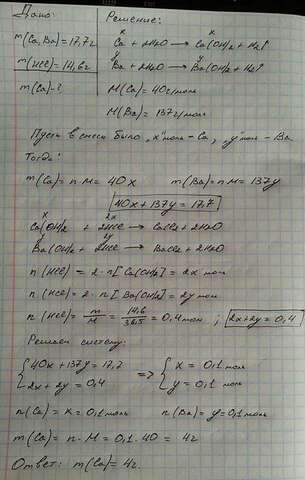 Дано:
Решение:
m(Ca,Ba)=17,7г
m(HCl)=14,6г
m(Ca)-?
x
Ca + 2H2O → Ca(OH)2 + H2↑
y
Ba + 2H2O → Ba(OH)2 + H2↑
M(Ca) = 40г/моль
M(Ba) = 137г/моль
Пусть в смеси было „x" моль - Ca, „y" моль - Ba
Тогда:
m(Ca) = n·M = 40x m(Ba)=n·M = 137y
40x + 137y = 17,7
x 2x
Ca(OH)2 + 2HCl → CaCl2 + 2H2O
y 2y
Ba(OH)2 + 2HCl → BaCl2 + 2H2O
n(HCl) = 2·n[Ca(OH)2] = 2x моль
n(HCl) = 2·n[Ba(OH)2] = 2y моль
n(HCl) = m/M = 14,6/36,5 = 0,4 моль ; 2x+2y = 0,4
Решаем систему:
{40x + 137y = 17,7 => {x = 0,1 моль
{2x + 2y = 0,4 {y = 0,1 моль
n(Ca) = x = 0,1 моль n(Ba) = y = 0,1 моль
m(Ca) = n·M = 0,1·40 = 4г
Ответ: m(Ca) = 4г.